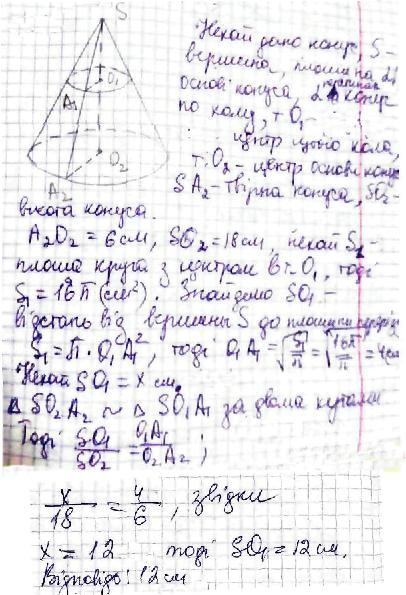 S
O₁
A₁
O₂
A₂
Нехай дано конус, S –
вершина, площина ∥
основі конуса, перетинає конус
по колу, т. O₁ –
центр цього кола,
т. O₂ – центр основи конуса
SA₂ – твірна конуса, SO₂ –
висота конуса.
A₂O₂ = 6 см, SO₂ = 18 см, нехай S₁ –
площа круга з центром в т. O₁, тоді
S₁ = 16π (см²). Знайдемо SO₁ –
відстань від вершини S до площини перерізу
S₁ = π · O₁A₁², тоді O₁A₁ = √(S₁/π) = √(16π/π) = 4 см
Нехай SO₁ = x см.
Δ SO₂A₂ ~ Δ SO₁A₁ за двома кутами
Тоді SO₁/SO₂ = O₁A₁/O₂A₂ ;
x/18 = 4/6 , звідки
x = 12 тоді SO₁ = 12 см.
Відповідь: 12 см